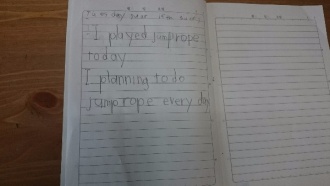 I played jumprope
today
I planning to do
jump rope every day